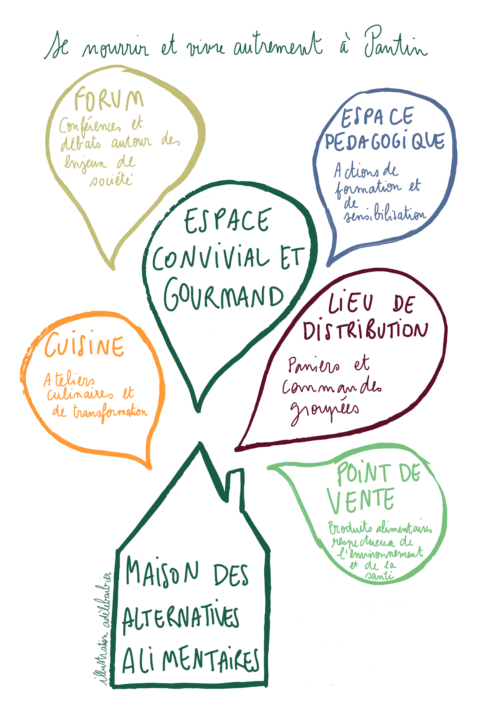 Se nourrir et vivre autrement à Pantin
FORUM
Conférences et
débats autour des
enjeux de
société
ESPACE
PEDAGOGIQUE
Actions de
formation et
de
sensibilisation
ESPACE
CONVIVIAL ET
GOURMAND
LIEU DE
DISTRIBUTION
Paniers et
commandes
groupées
CUISINE
Ateliers
culinaires et
de transformation
POINT DE
VENTE
Produits alimentaires
respectueux de
l'environnement
et de la
santé
MAISON DES
ALTERNATIVES
ALIMENTAIRES
illustration